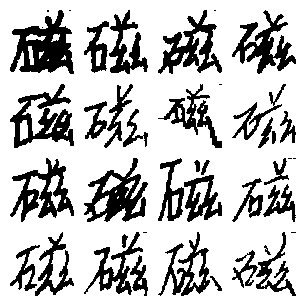 磁磁磁磁
磁磁磁磁
磁磁磁磁
磁磁磁磁